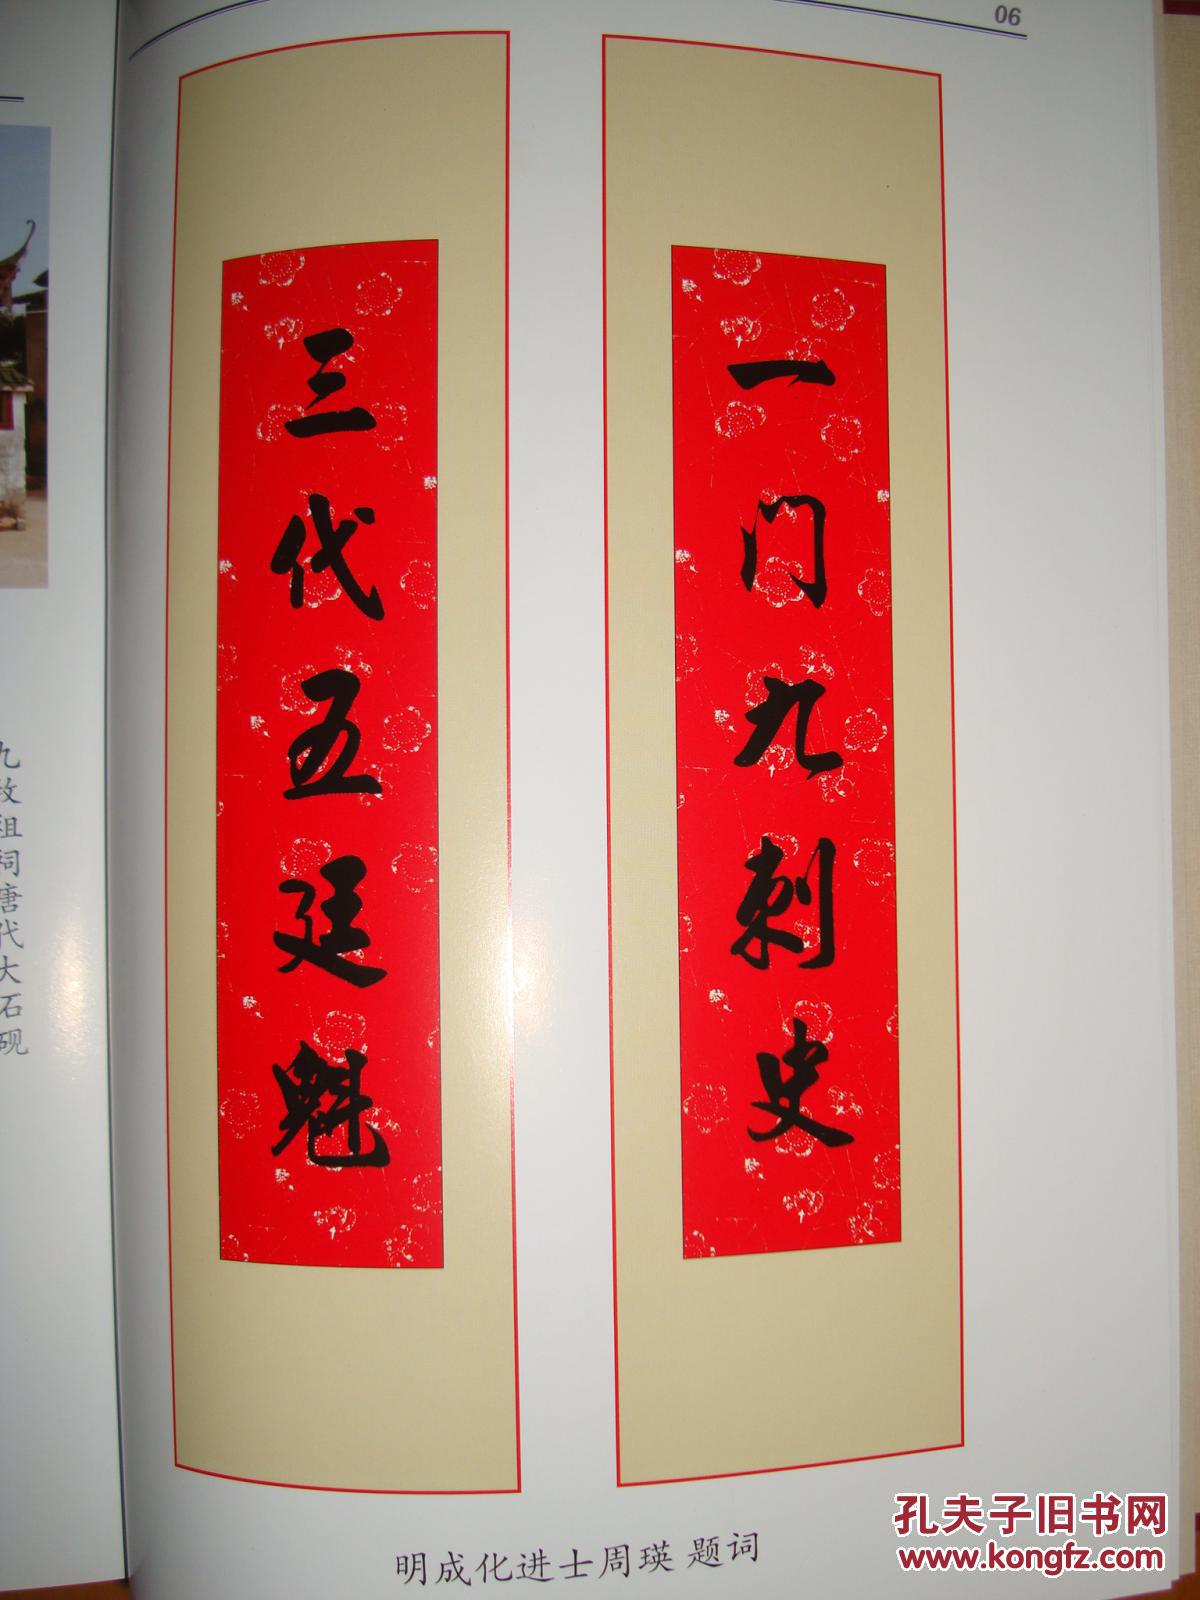 06
一门九刺史
三代五廷魁
九牧祖祠唐代大石砚
明成化进士周瑛 题词
孔夫子旧书网
www.kongfz.com